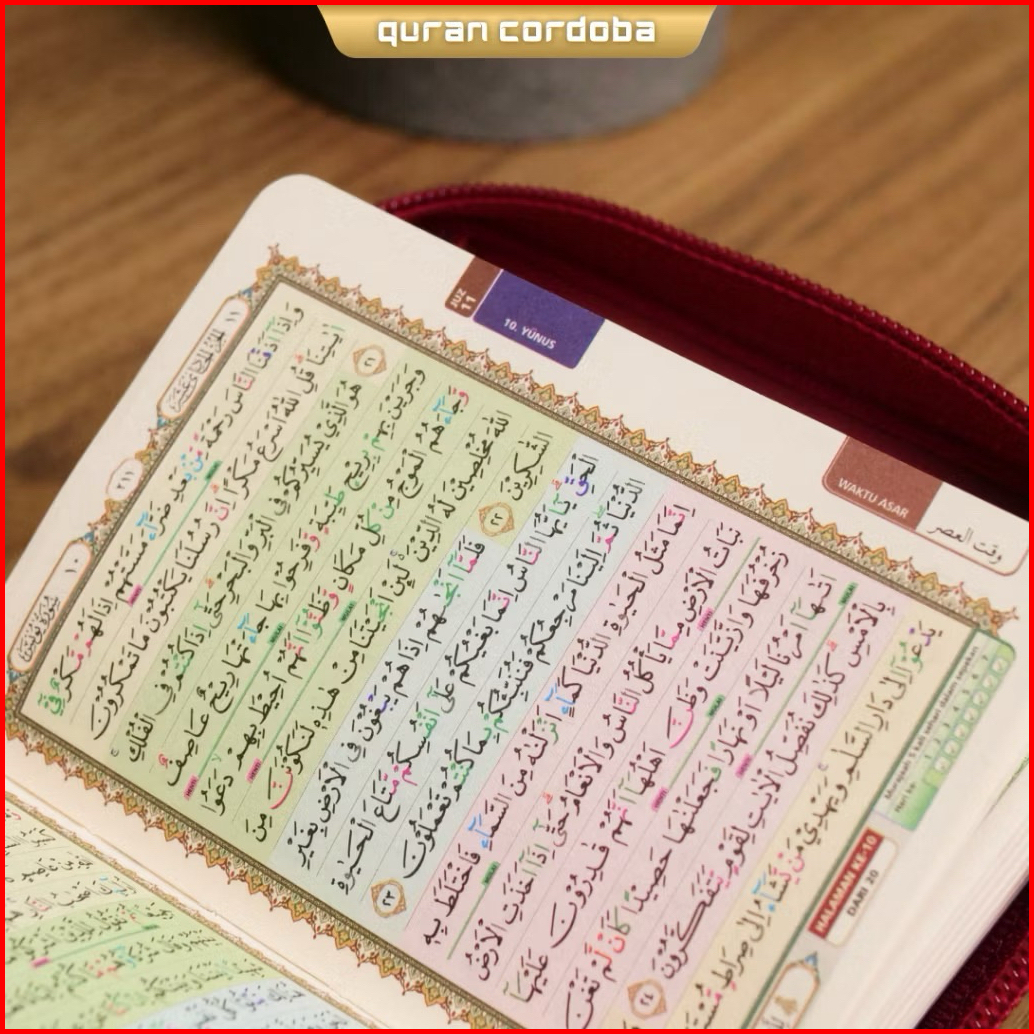 quran cordoba
JUZ 11
10. YŪNUS
WAKTU ASAR
وقت العصر
١١ الجزء الحادي عشر
٢١١
سورة يونس ١٠
وَاِذَآ اَذَقْنَا النَّاسَ رَحْمَةً مِّنْۢ بَعْدِ ضَرَّاۤءَ مَسَّتْهُمْ اِذَا لَهُمْ مَّكْرٌ فِيْٓ
اٰيَاتِنَاۗ قُلِ اللّٰهُ اَسْرَعُ مَكْرًاۗ اِنَّ رُسُلَنَا يَكْتُبُوْنَ مَا تَمْكُرُوْنَ
٢١ هُوَ الَّذِيْ يُسَيِّرُكُمْ فِى الْبَرِّ وَالْبَحْرِۗ حَتّٰىٓ اِذَا كُنْتُمْ فِى الْفُلْكِۚ
وَجَرَيْنَ بِهِمْ بِرِيْحٍ طَيِّبَةٍ وَّفَرِحُوْا بِهَا جَاۤءَتْهَا رِيْحٌ عَاصِفٌ
وَّجَاۤءَهُمُ الْمَوْجُ مِنْ كُلِّ مَكَانٍ وَّظَنُّوْٓا اَنَّهُمْ اُحِيْطَ بِهِمْۙ دَعَوُا
اللّٰهَ مُخْلِصِيْنَ لَهُ الدِّيْنَ ەۚ لَىِٕنْ اَنْجَيْتَنَا مِنْ هٰذِهٖ لَنَكُوْنَنَّ مِنَ
الشّٰكِرِيْنَ ٢٢ فَلَمَّآ اَنْجٰىهُمْ اِذَا هُمْ يَبْغُوْنَ فِى الْاَرْضِ بِغَيْرِ
الْحَقِّۗ يٰٓاَيُّهَا النَّاسُ اِنَّمَا بَغْيُكُمْ عَلٰٓى اَنْفُسِكُمْ مَّتَاعَ الْحَيٰوةِ
الدُّنْيَاۖ ثُمَّ اِلَيْنَا مَرْجِعُكُمْ فَنُنَبِّئُكُمْ بِمَا كُنْتُمْ تَعْمَلُوْنَ ٢٣
اِنَّمَا مَثَلُ الْحَيٰوةِ الدُّنْيَا كَمَاۤءٍ اَنْزَلْنٰهُ مِنَ السَّمَاۤءِ فَاخْتَلَطَ بِهٖ
نَبَاتُ الْاَرْضِ مِمَّا يَأْكُلُ النَّاسُ وَالْاَنْعَامُۗ حَتّٰىٓ اِذَآ اَخَذَتِ الْاَرْضُ
زُخْرُفَهَا وَازَّيَّنَتْ وَظَنَّ اَهْلُهَآ اَنَّهُمْ قٰدِرُوْنَ عَلَيْهَآ
اَتٰىهَآ اَمْرُنَا لَيْلًا اَوْ نَهَارًا فَجَعَلْنٰهَا حَصِيْدًا كَاَنْ لَّمْ تَغْنَ
بِالْاَمْسِۗ كَذٰلِكَ نُفَصِّلُ الْاٰيٰتِ لِقَوْمٍ يَّتَفَكَّرُوْنَ ٢٤
يَدْعُوْٓا اِلٰى دَارِ السَّلٰمِ وَيَهْدِيْ مَنْ يَّشَاۤءُ اِلٰى صِرَاطٍ
HALAMAN KE-10
DARI 20